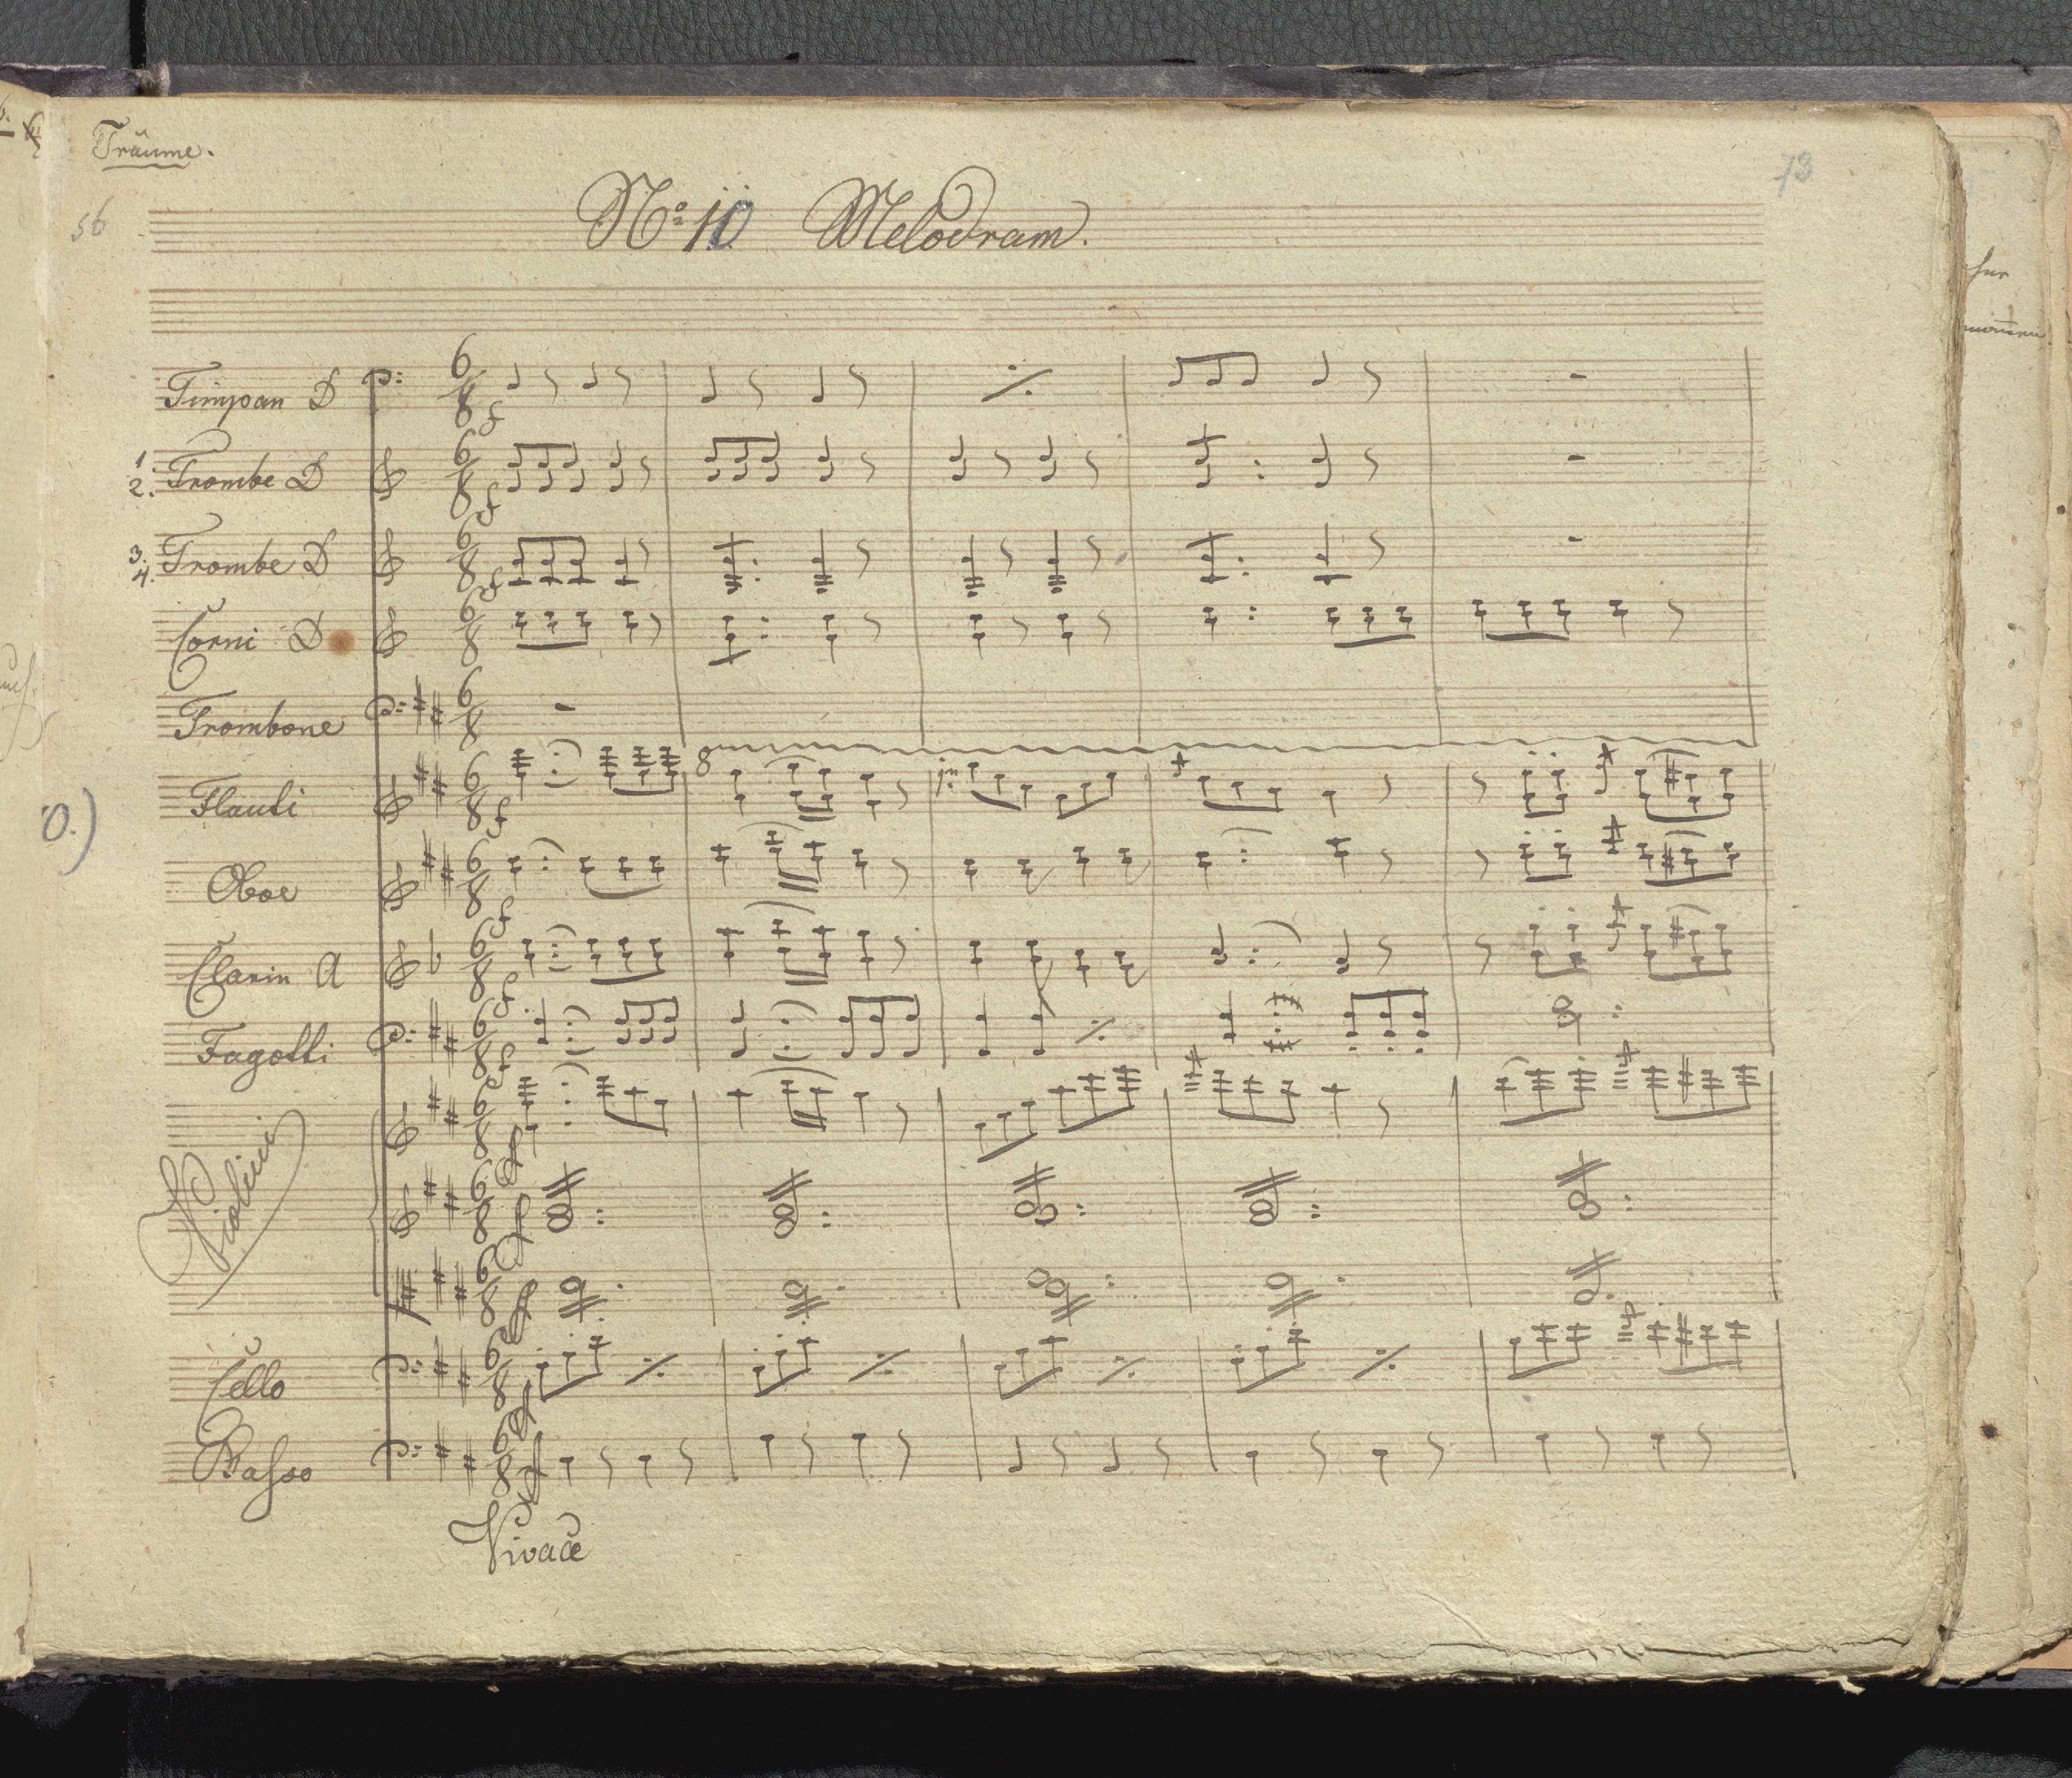 Träume.
73
56
No: 10 Melodram.
Timpan D
1.
2. Trombe D
3.
4. Trombe D
Corni D
Trombone
Flauti
Oboe
Clarin A
Fagotti
Violini
Cello
Basso
Vivace